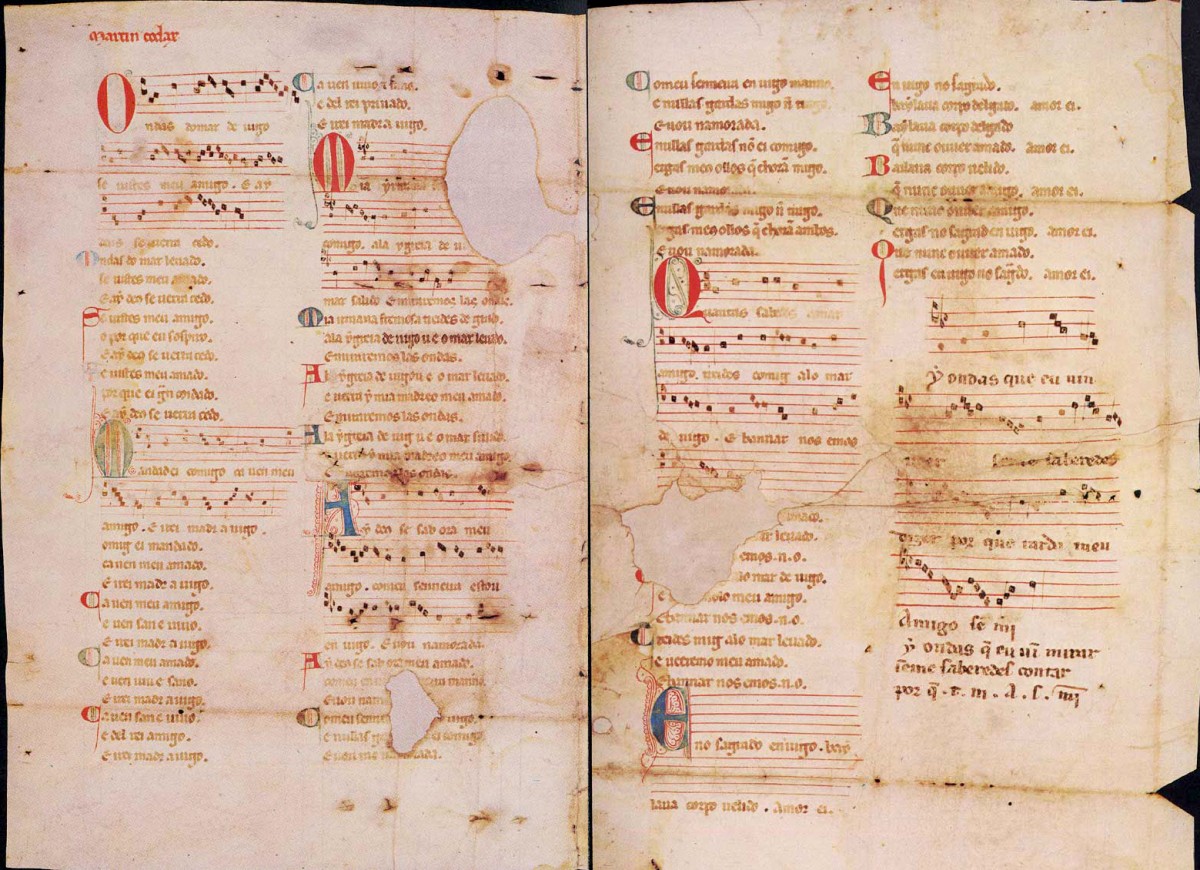 Martin codax
Ondas do mar de uigo
se uistes meu amigo. E ay
deus se uerra cedo.
Ondas do mar leuado.
se uistes meu amado.
E ay deo se uerra cedo.
Se uistes meu amigo.
o por que eu sospiro.
E ay deo se uerra cedo.
Se uistes meu amado.
por que ei gran coidado.
E ay deo se uerra cedo.
Mandadei comigo ca uen meu
amigo. E irei madr a uigo.
comig ei mandado.
ca uen meu amado.
E irei madr a uigo.
Ca uen meu amigo.
e uen san e uiuo.
E irei madr a uigo.
Ca uen meu amado.
e uen uiu e sano.
E irei madr a uigo.
Ca uen san e uiuo.
e del rei amigo.
E irei madr a uigo.
Ca uen uiuo e sano.
e del rei priuado.
E irei madr a uigo.
Mia yrmana
comigo. ala ygreia de
mar salido E miraremos las ondas.
Mia irmana fremosa treides de grado.
ala ygreia de uigo u e o mar leuado.
E miraremos las ondas.
Ala ygreia de uigo u e o mar leuado.
e uerra y mia madreo meu amado.
E miraremos las ondas.
Ala ygreia de uig u e o mar salido.
e uerra y mia madreo meu amigo.
E miraremos las ondas.
Ay deo se sab ora meu
amigo. comeu senneira estou
en uigo. E uou namorada.
Ay deo se sab ora meu amado.
comeu en uigo manno.
E uou nam
Comeu senn uigo.
e nullas g ei comigo.
E uou na ada.
Comeu senneira en uigo manno.
e nullas gardas migo n trago.
E uou namorada.
E nullas gardas nō ei comigo.
ergas meo ollos q̄ chorā migo.
E uou namorada.
E nullas gardas migo n trago.
ergas meo ollos q̄ chorā ambos.
E uou namorada.
Quantas sabedes amar
amigo. treides comig alo mar
de uigo. E bannar nos emos
amado.
ar leuado.
emos.n.o.
lo mar de uigo.
meu amigo.
E bannar nos emos.n.o.
Treides mig alo mar leuado.
e ueeremo meu amado.
E bannar nos emos.n.o.
Eno sagrado en uigo. bay
laua corpo uelido. Amor ei.
En uigo no sagrado.
baylaua corpo delgado. amor ei.
Baylaua corpo delgado
q̄ nunc ouuer amado. amor ei.
Bailaua corpo uelido.
q̄ nunc ouuer amigo. amor ei.
Que nunc ouuer amigo.
ergas no sagrad en uigo. amor ei.
Que nunc ouuer amado.
ergas en uigo no sagrado. amor ei.
Ay ondas que eu uin
ueer se me saberedes
dizer por que tarda meu
Amigo sē mī
Ay ondas q̄ eu uī mirar
se me saberedes contar
por q̄ . t . m . A . s . mī